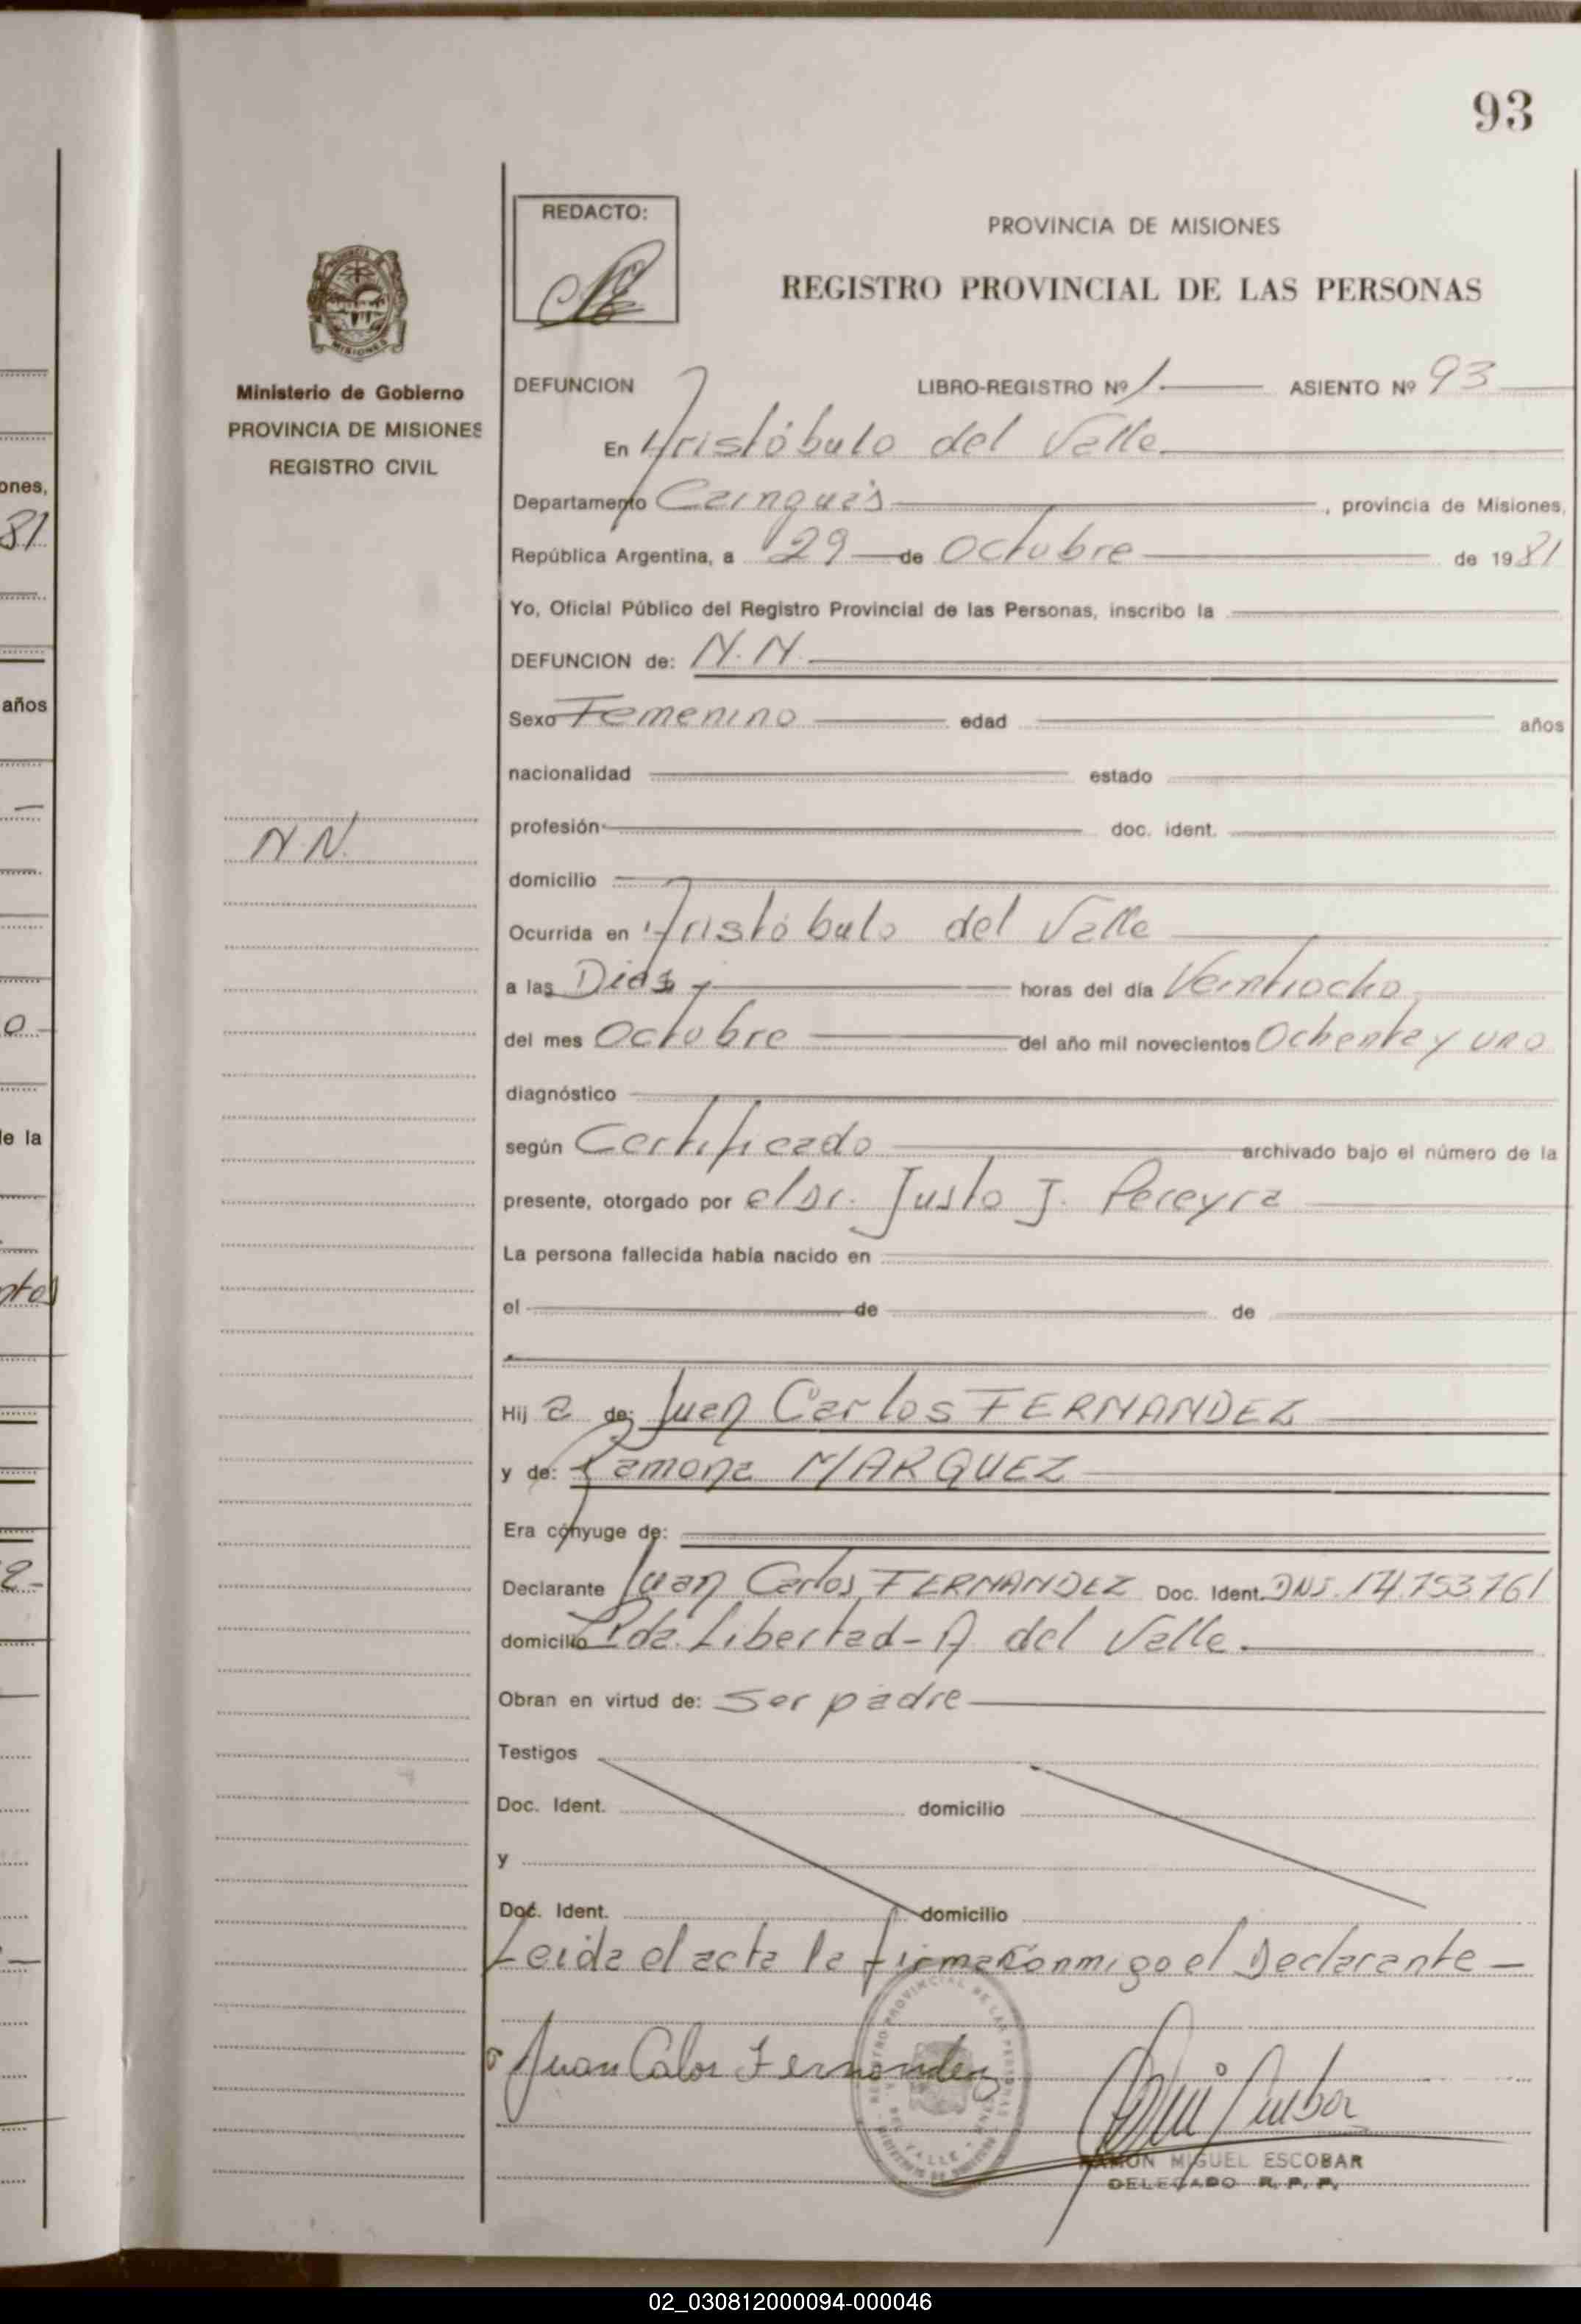 93
REDACTO:
PROVINCIA DE MISIONES
REGISTRO PROVINCIAL DE LAS PERSONAS
MISIONES
Ministerio de Gobierno
PROVINCIA DE MISIONES
REGISTRO CIVIL
DEFUNCION LIBRO-REGISTRO Nº 1. ASIENTO Nº 93
En Aristóbulo del Valle.
Departamento Cainguás, provincia de Misiones,
República Argentina, a 29 de Octubre de 1981
Yo, Oficial Público del Registro Provincial de las Personas, inscribo la
DEFUNCION de: N.N.
Sexo Femenino edad años
nacionalidad estado
N.N.
profesión doc. ident.
domicilio
Ocurrida en Aristóbulo del Valle
a las Dies horas del día Veintiocho
del mes Octubre del año mil novecientos Ochenta y uno
diagnóstico
según Certificado archivado bajo el número de la
presente, otorgado por el Dr. Justo J. Pereyra
La persona fallecida había nacido en
el de de
Hij a de: Juan Carlos FERNANDEZ
y de: Ramona MARQUEZ
Era cónyuge de:
Declarante Juan Carlos FERNANDEZ Doc. Ident. DNI. 14.753.761
domicilio Pda. Libertad - A. del Valle.
Obran en virtud de: Ser padre
Testigos
Doc. Ident. domicilio
y
Doc. Ident. domicilio
Leida el acta la firma Conmigo el Declarante
Juan Calos Fernandez
RAMON MIGUEL ESCOBAR
DELEGADO R. P. P.
ones,
81
años
o
e la
ntos
02_030812000094-000046